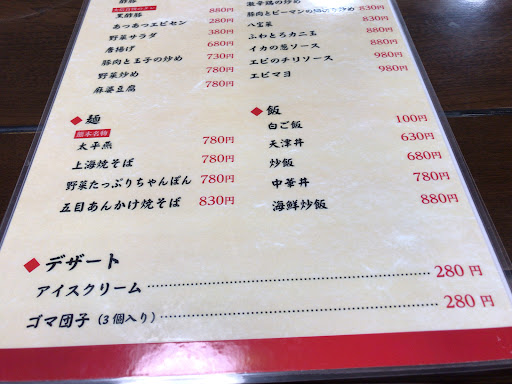 酢豚
黒酢豚 880円
あつあつエビセン 280円
野菜サラダ 380円
唐揚げ 680円
豚肉と玉子の炒め 730円
野菜炒め 780円
麻婆豆腐 780円
激辛鶏の炒め
豚肉とピーマンの細切り炒め 830円
八宝菜 830円
ふわとろカニ玉 830円
イカの葱ソース 880円
エビのチリソース 980円
エビマヨ 980円
◆麺
熊本名物
太平燕 780円
上海焼そば 780円
野菜たっぷりちゃんぽん 780円
五目あんかけ焼そば 830円
◆飯
白ご飯 100円
天津丼 630円
炒飯 680円
中華丼 780円
海鮮炒飯 880円
◆デザート
アイスクリーム 280円
ゴマ団子(3個入り) 280円